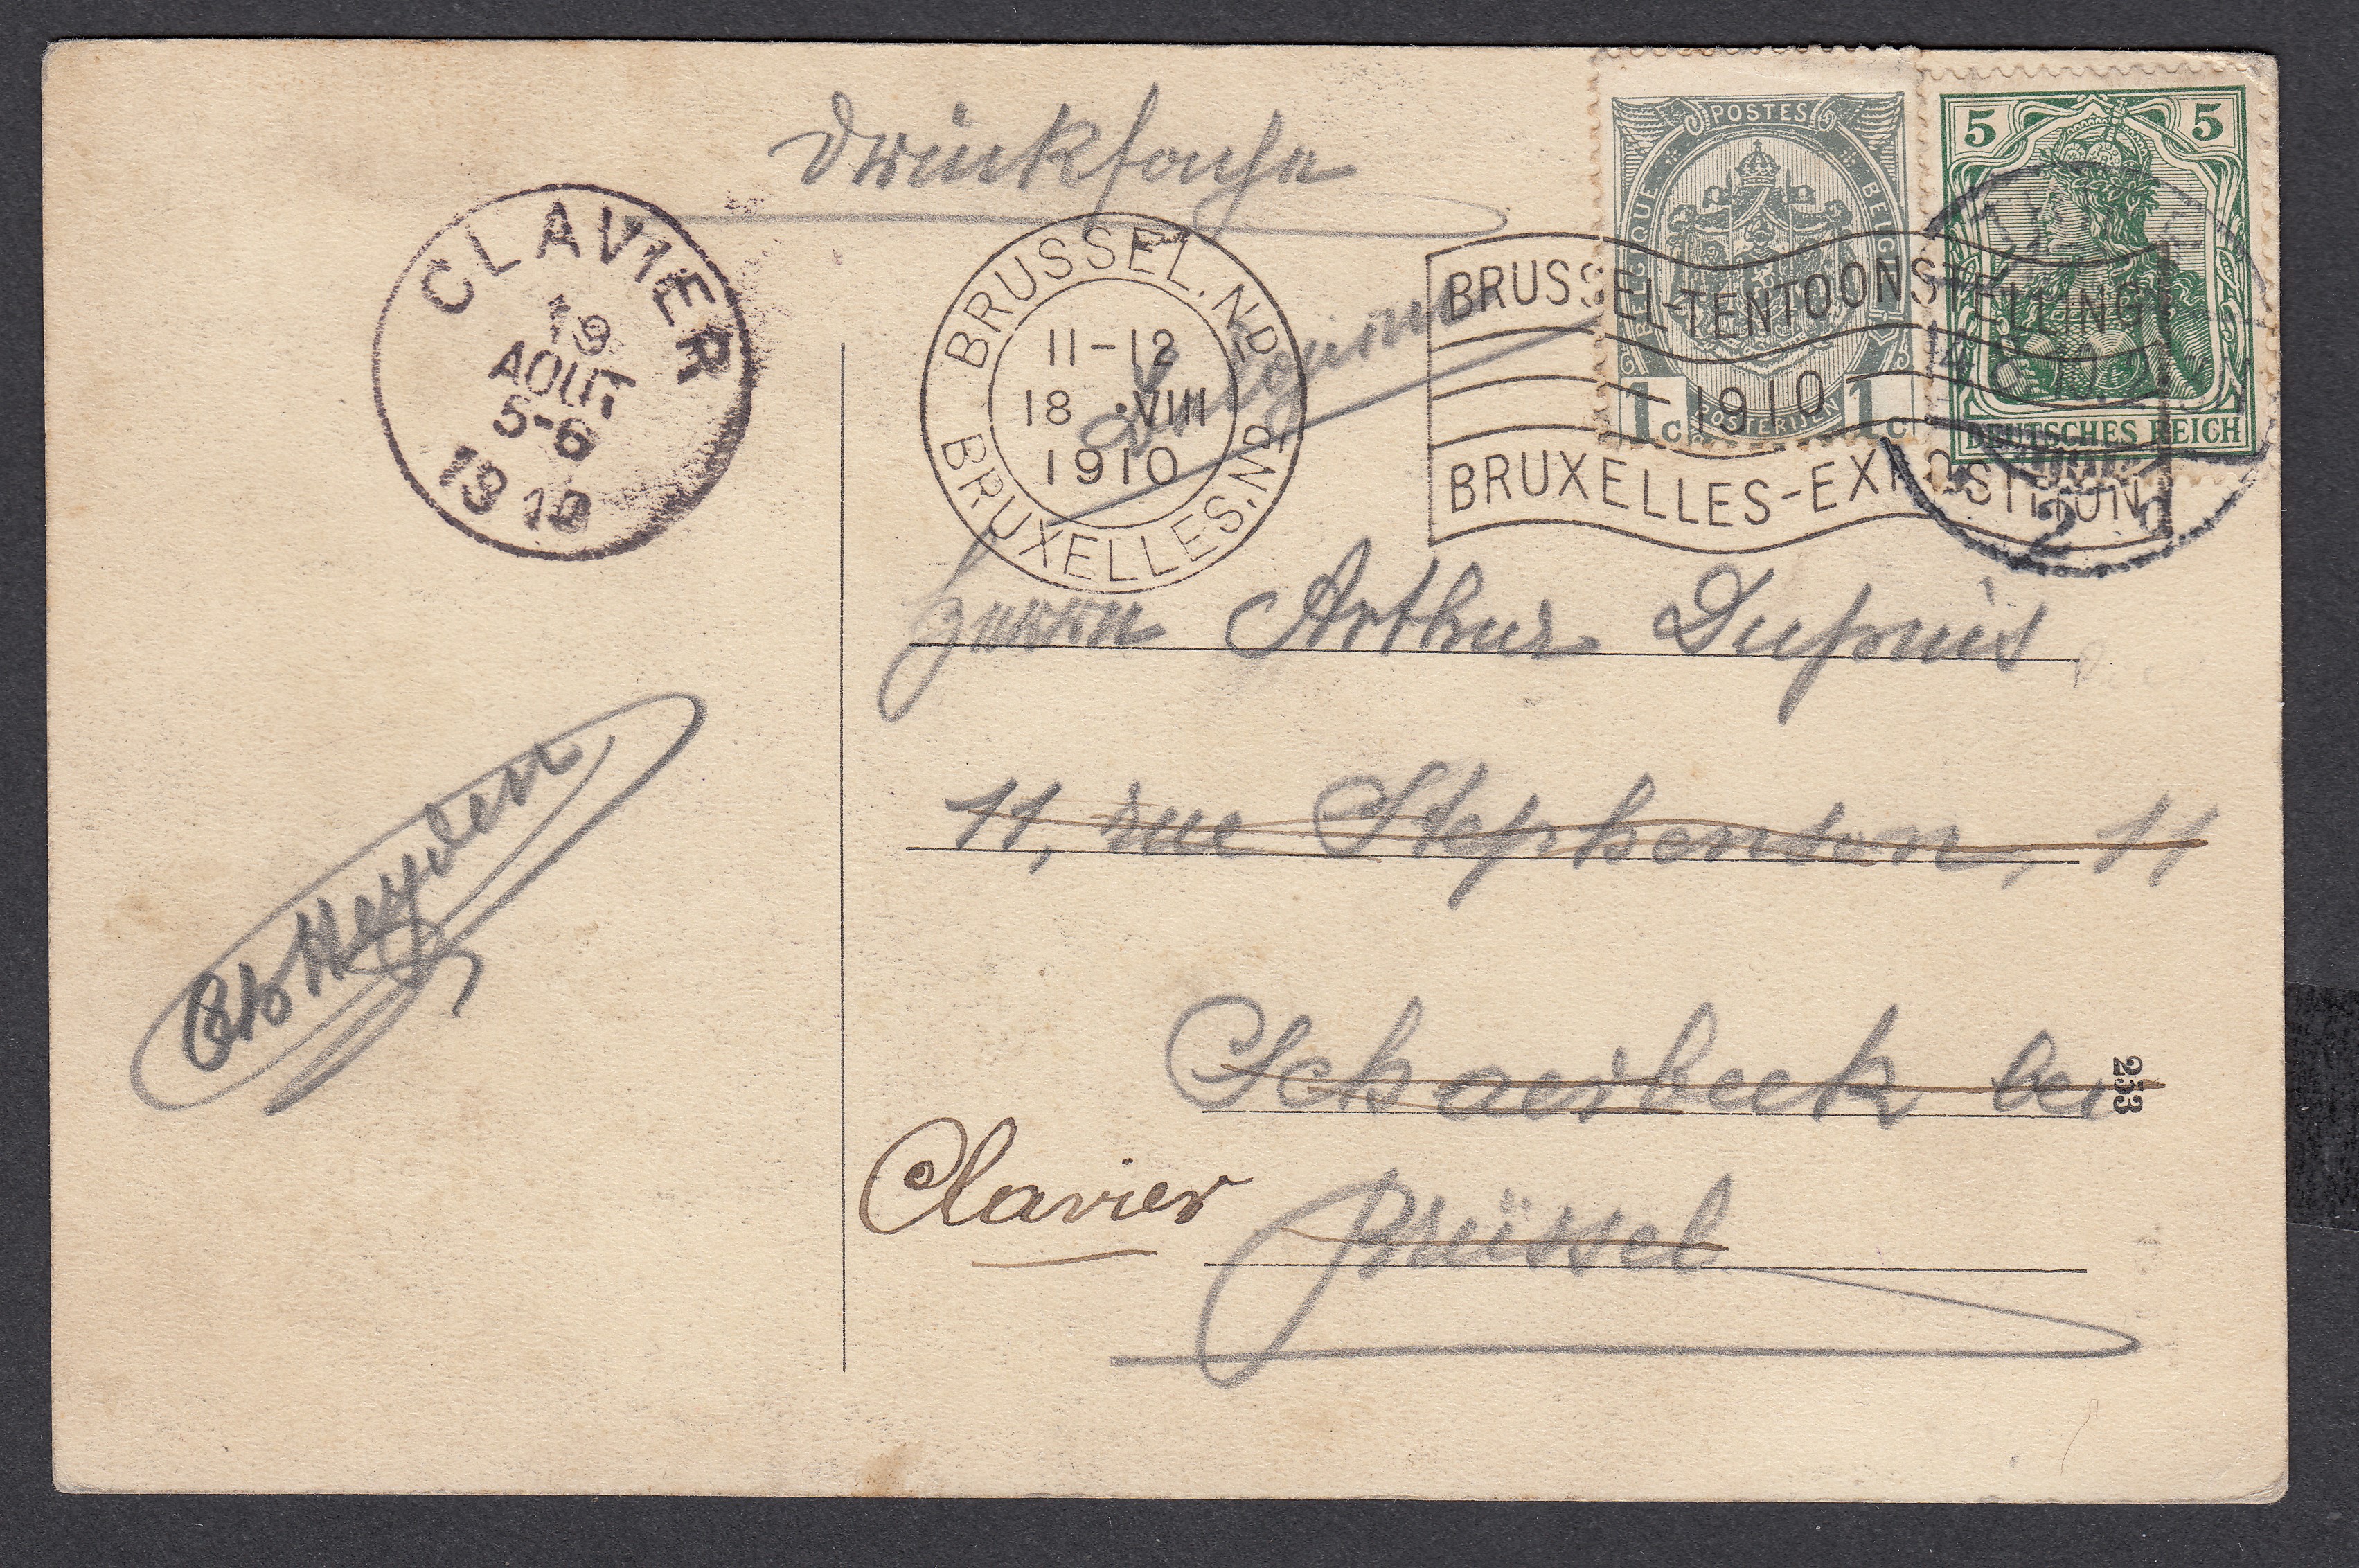 Drucksache
POSTES
BELGIQUE
BELGIË
POSTERIJEN
1 c 1 c
5 5
DEUTSCHES REICH
CLAVIER
19
AOUT
5-6
1910
BRUSSEL.ND
11-12
18 .VIII
1910
BRUXELLES.MD
BRUSSEL-TENTOONSTELLING
1910
BRUXELLES-EXPOSITION
2
Herrn Arthur Dupuis
11, rue Stephenson, 11
Schaerbeek bei
253
Clavier
Brüssel
Heyden